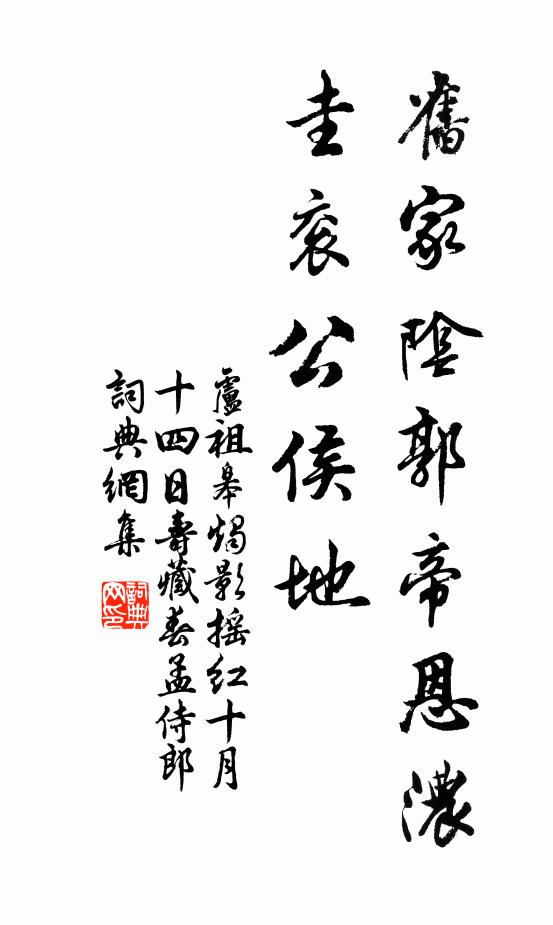 舊家陰郭帝恩濃
圭袞公侯地
盧祖皋燭影搖紅十月
十四日壽藏春孟侍郎
詞典網集
詞典
网印